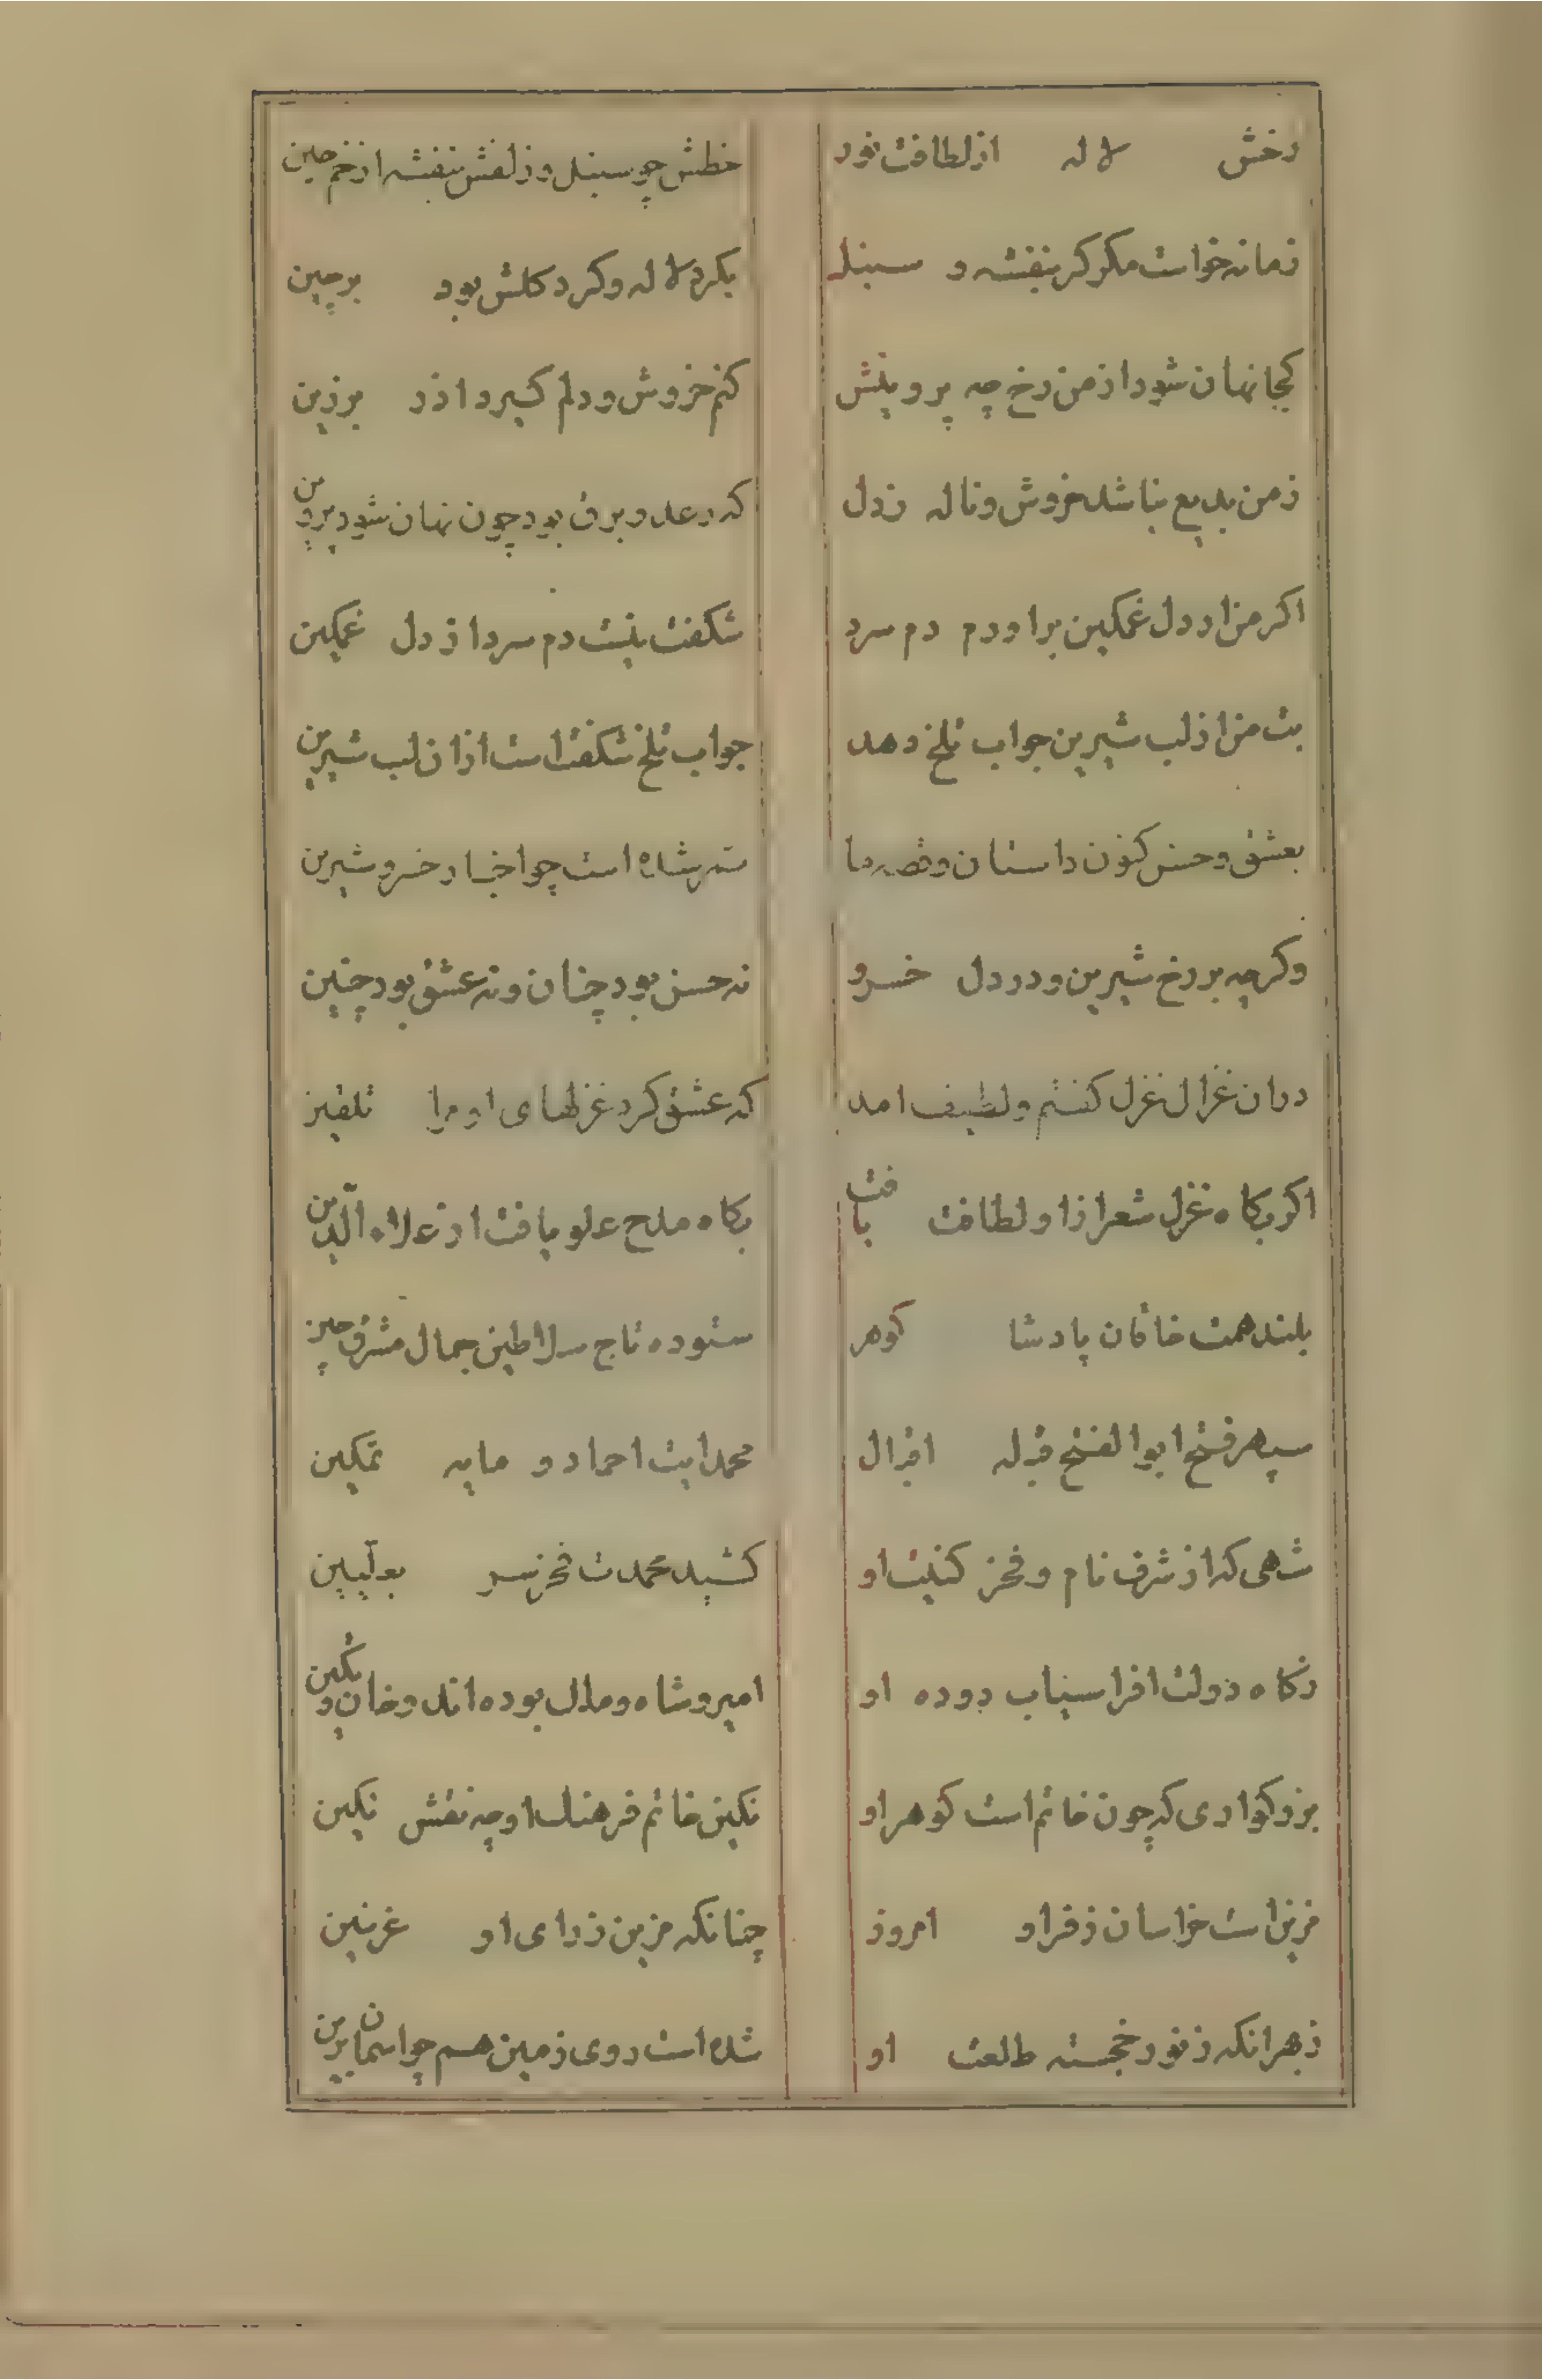 رخش لاله از لطافت نور
خطش چو سنبل و زلفش بنفشه از خم چین
زمانه خواست مکر کر بنفشه و سنبل
بکرد لاله و کرد کلش بود برچین
کجا نهان شود از من رخ چه پروینش
کنم خروش و دلم کیرد اذر برزین
ز من بدیع نباشد خروش و ناله زدل
که رعد و برق بود چون نهان شود پروین
اکر من از دل غمکین براورم دم سرد
شکفت نیست دم سرد از دل غمکین
بت من از لب شیرین جواب تلخ دهد
جواب تلخ شکفت است ازان لب شیرین
بعشق و حسن کنون داستان و قصه ما
سمر شاه است چو اخبار خسرو شیرین
وکرچه بر رخ شیرین و در دل خسرو
نه حسن بود چنان و نه عشق بود چنین
دران غزال غزل کفتم و لطیف امد
که عشق کرد غزلهای او مرا تلقین
اکر بکاه غزل شعر ازو لطافت یافت
بکاه مدح علو یافت از علاء الدین
بلند همت خاقان پادشا کوهر
ستوده تاج سلاطین جمال مشرق و چین
سپهر فتح ابو الفتح قبله اقبال
محمد ایت احماد و مایه تمکین
شهی که از شرف نام و فخر کنیت او
کشید محمدت فخر سر بعلیین
زکاه دولت افراسیاب دوده او
امیر و شاه و ملک بوده اند و خان و تکین
بزرکواری که چون خاتم است کوهر او
نکین خاتم فرهنک او چه نقش نکین
مزین است خراسان ز فر او امروز
چنانکه مزین ز رای او غزنین
زبهر انکه ز نور خجسته طلعت او
شده است روی زمین هم چو اسمان برین